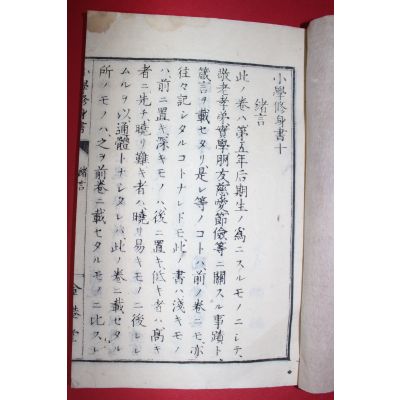 小學修身書十
緒言
此ノ卷ハ第五年后期生ノ爲ニスルモノニシテ、
敬老孝學實學朋友慈愛節儉等ニ關スル事蹟ト
箴言ヲ載セタリ是レ等ノコトハ前ノ卷ニモ亦
往々記シタルコトナレドモ此ノ書ハ淺キモノ
ハ前ニ置キ深キモノハ後ニ置キ低キ者ハ高キ
者ニ先チ曉リ難キ者ハ曉リ易キモノニ後レシ
ムルヲ以通體トナシタレバ此ノ卷ニ載セタル
所ノモノハ之ヲ前卷ニ載セタルモノニ比スレ
小學修身書
緒言
金港堂